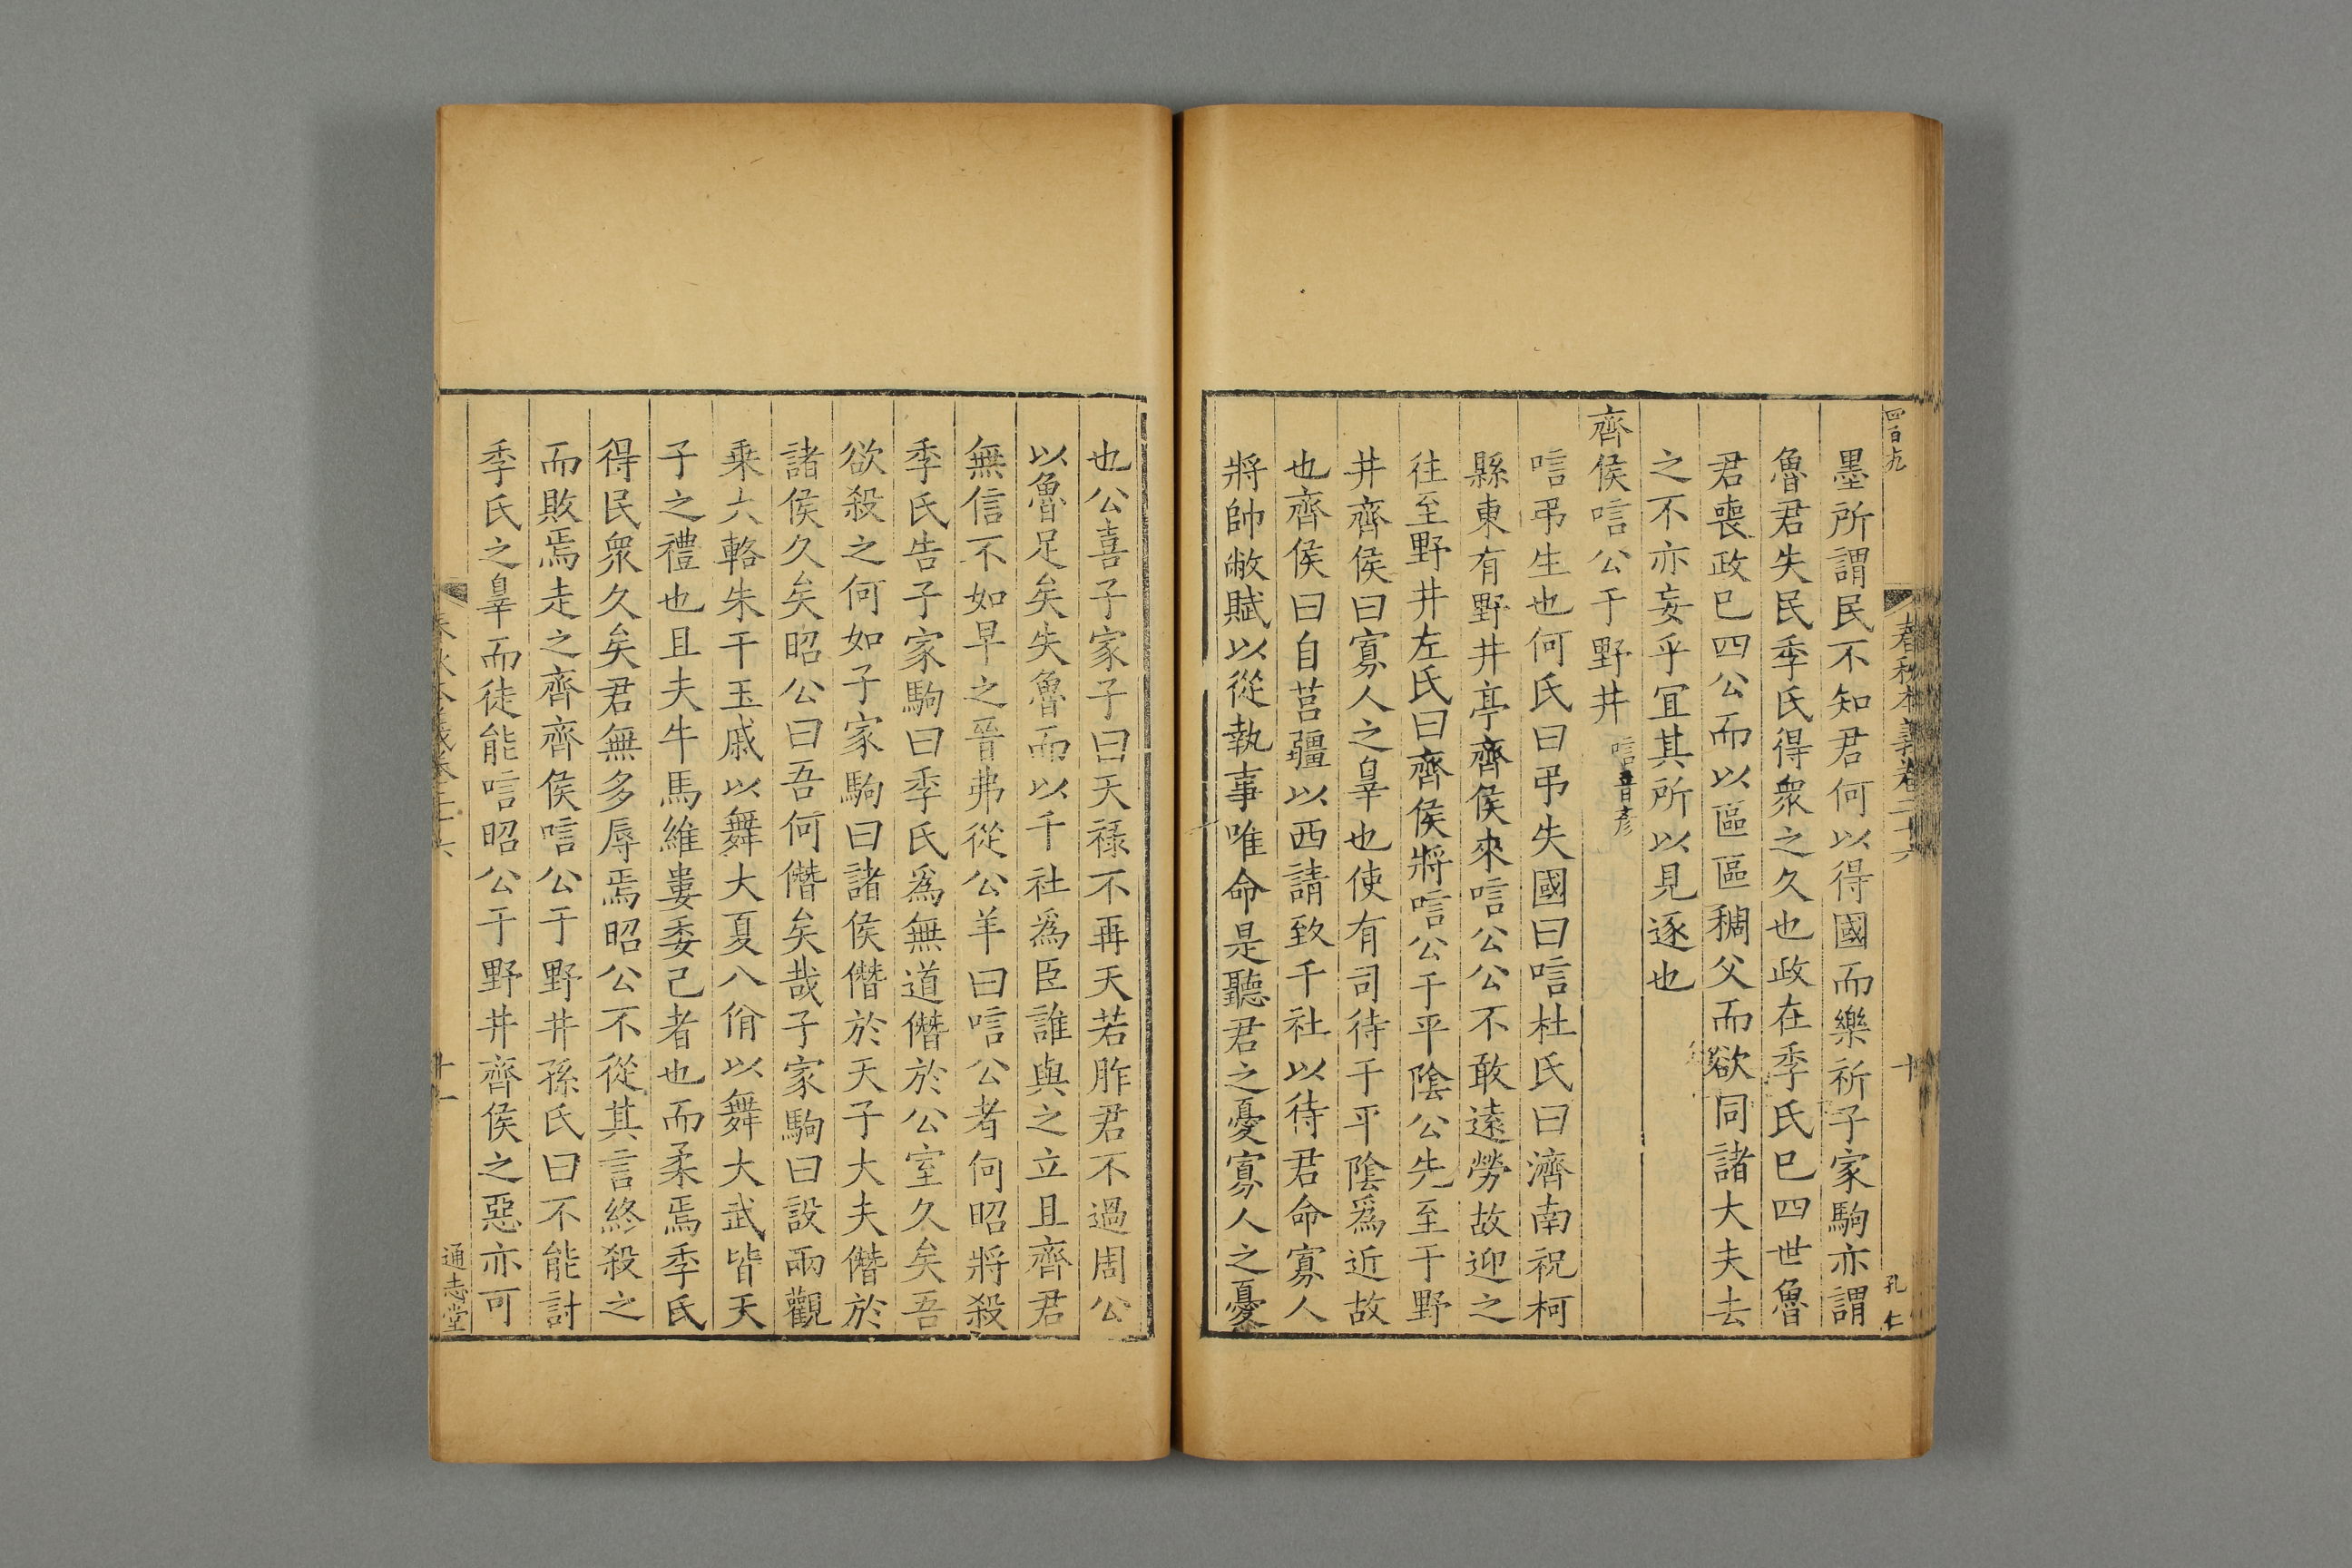 四百九
春秋本義卷二十六
十
孔仁
墨所謂民不知君何以得國而樂祈子家駒亦謂
魯君失民季氏得衆之久也政在季氏巳四世魯
君喪政巳四公而以區區稠父而欲同諸大夫去
之不亦妄乎冝其所以見逐也
齊侯唁公于野井唁音彦
唁弔生也何氏曰弔失國曰唁杜氏曰濟南祝柯
縣東有野井亭齊侯來唁公公不敢遠勞故迎之
往至野井左氏曰齊侯將唁公于平隂公先至于野
井齊侯曰寡人之辠也使有司待于平隂爲近故
也齊侯曰自莒疆以西請致千社以待君命寡人
將帥敝賦以從執事唯命是聽君之憂寡人之憂
也公喜子家子曰天祿不再天若胙君不過周公
以魯足矣失魯而以千社爲臣誰與之立且齊君
無信不如早之晉弗從公羊曰唁公者何昭將殺
季氏告子家駒曰季氏爲無道僭於公室久矣吾
欲殺之何如子家駒曰諸侯僭於天子大夫僭於
諸侯久矣昭公曰吾何僭矣哉子家駒曰設兩觀
乗大輅朱干玉戚以舞大夏八佾以舞大武皆天
子之禮也且夫牛馬維婁委己者也而柔焉季氏
得民衆久矣君無多辱焉昭公不從其言終殺之
而敗焉走之齊齊侯唁公于野井孫氏曰不能討
季氏之辠而徒能唁昭公于野井齊侯之惡亦可
春秋本義卷二十六
十一
通志堂